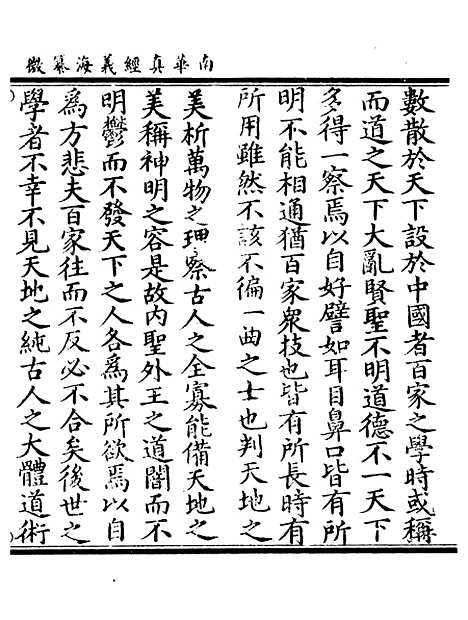 南華真經義海纂微
數散於天下設於中國者百家之學時或稱
而道之天下大亂賢聖不明道德不一天下
多得一察焉以自好譬如耳目鼻口皆有所
明不能相通猶百家衆技也皆有所長時有
所用雖然不該不徧一曲之士也判天地之
美析萬物之理察古人之全寡能備天地之
美稱神明之容是故内聖外王之道闇而不
明鬱而不發天下之人各爲其所欲焉以自
爲方悲夫百家往而不反必不合矣後世之
學者不幸不見天地之純古人之大體道術